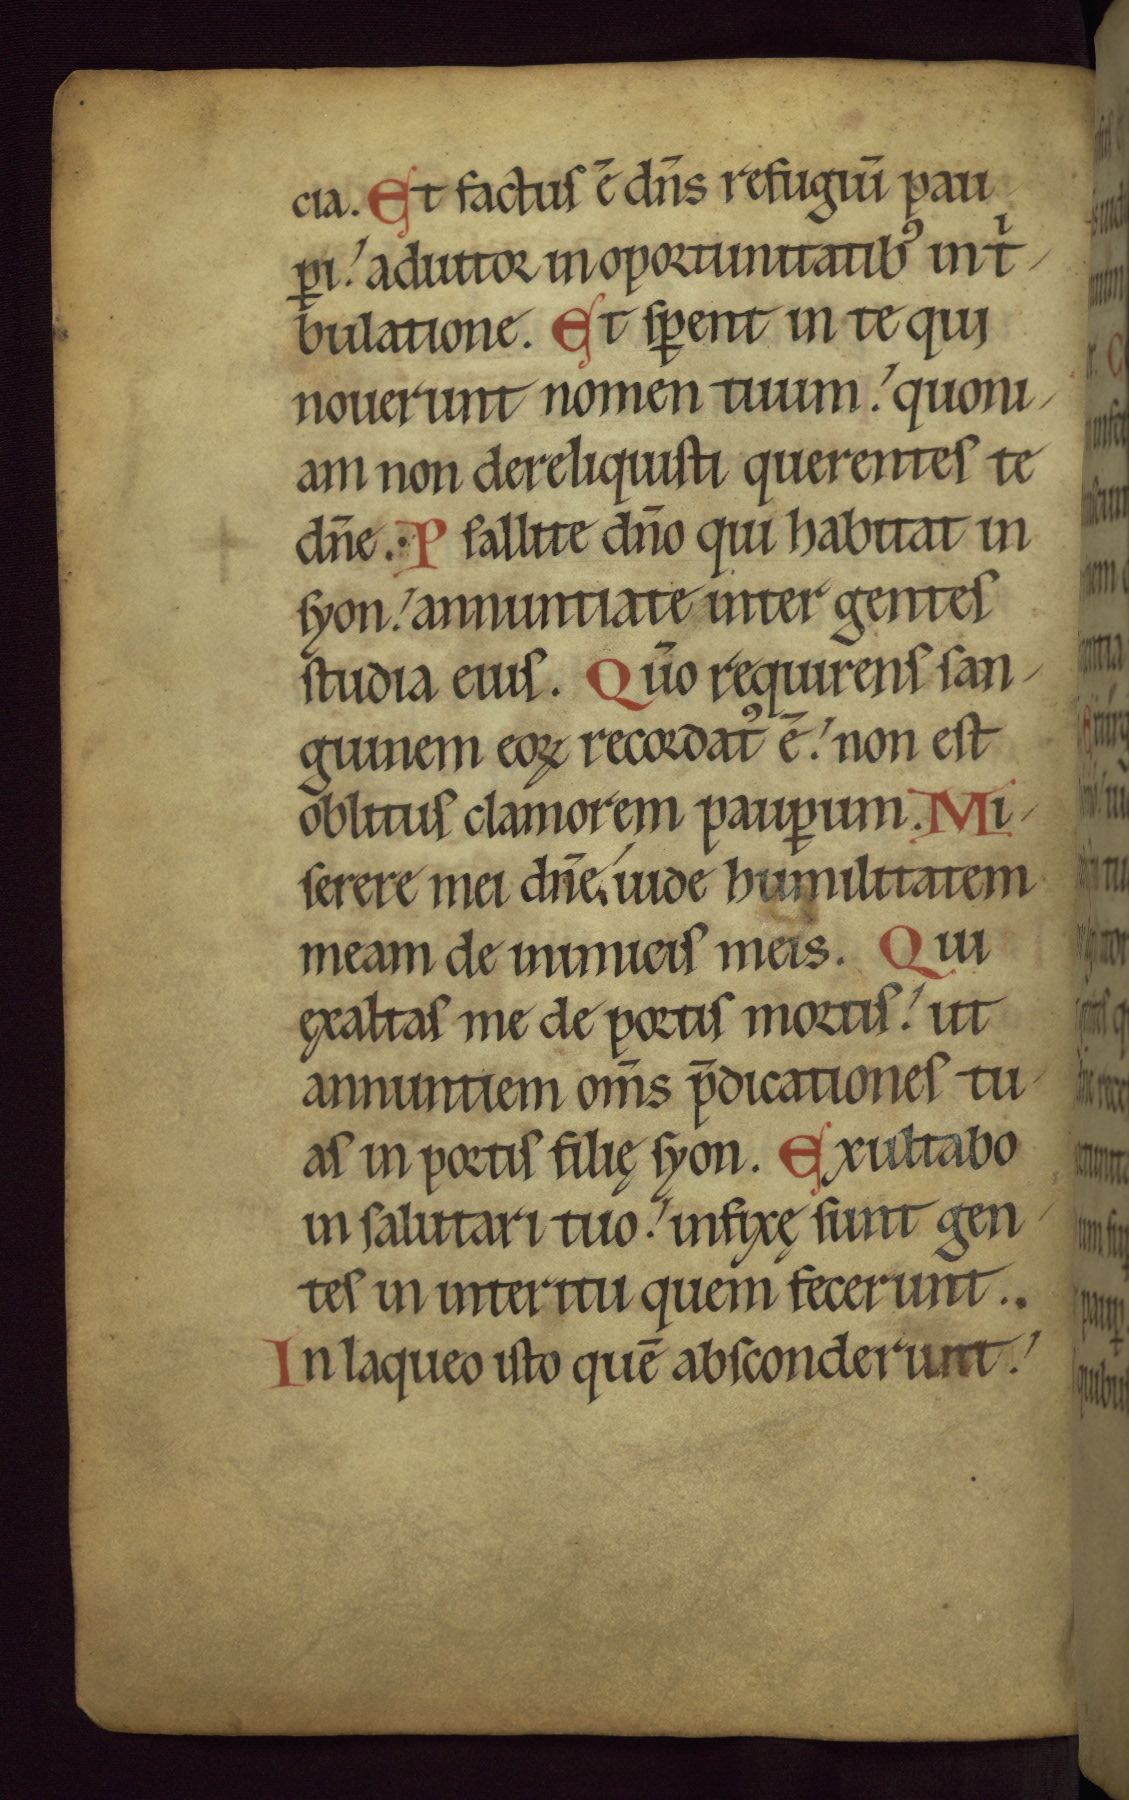 cia. Et factus ē dn̄s refugiū pau
ꝑi! adiutor in oportunitatibꝰ in tͥ-
bulatione. Et sꝑent in te qui
nouerunt nomen tuum! quoni-
am non dereliquisti querentes te
dn̄e. Psallite dn̄o qui habitat in
syon! annuntiate inter gentes
studia eius. Qūo requirens san-
guinem eoꝝ recordatꝰ ē! non est
oblitus clamorem pauꝑum. Mi-
serere mei dn̄e! uide humilitatem
meam de inimicis meis. Qui
exaltas me de portis mortis! ut
annuntiem om̄s p̄dicationes tu-
as in portis filię syon. Exultabo
in salutari tuo! infixę sunt gen-
tes in interitu quem fecerunt..
In laqueo isto quē absconderunt!